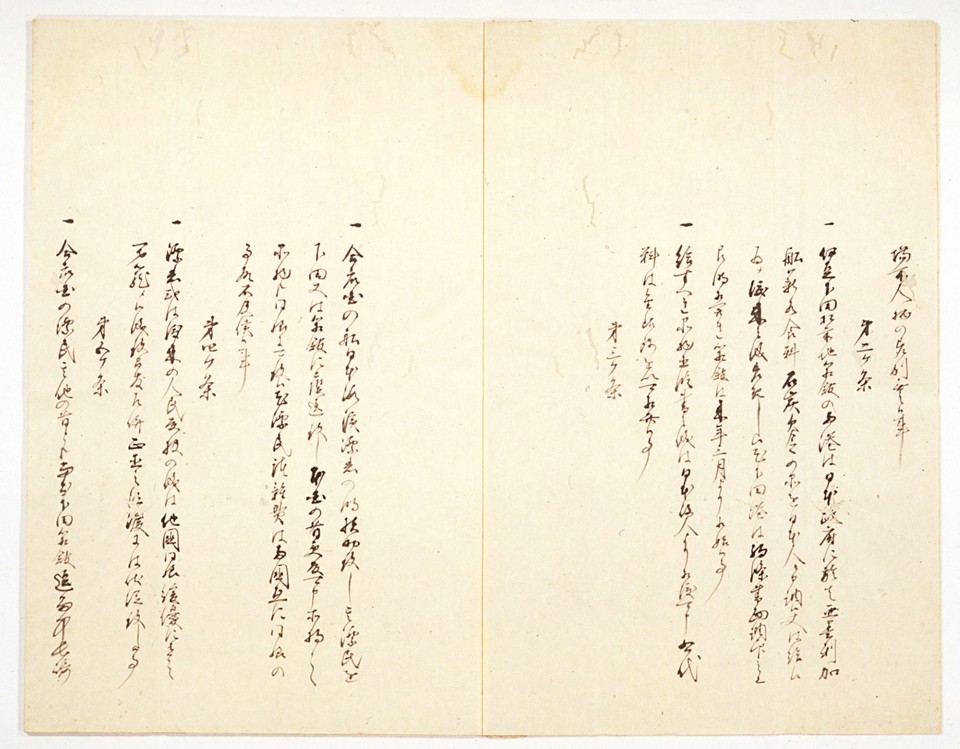 場所人柄の差別無之事
第二ヶ条
一 伊豆下田松前地箱館の両港は日本政府ニ於て亜墨利加
船薪水食料石炭欠乏の品を日本人ニ而調候丈は給候
為メ渡来之儀差免し候尤下田港は約条書面調印之上
即時相開き箱館は来年三月より相始候事
一 給すへき品物直段書之儀は日本役人より相渡可申右代
料は金銀銭を以可相弁候事
第三ヶ条
一 合衆国の船日本海浜漂着の時扶助致し其漂民を
下田又は箱館に護送致し本国の者受取可申所持の
品物も同様に可致候尤漂民諸雑費は両国互に同様の
事故不及償候事
第四ヶ条
一 漂着或は渡来の人民取扱の儀は他國同様緩優に有之
閉籠メ候儀致間敷乍併正直の法度には伏従致し候事
第五ヶ条
一 合衆国の漂民其他の者とも当分下田箱館逗留中長崎